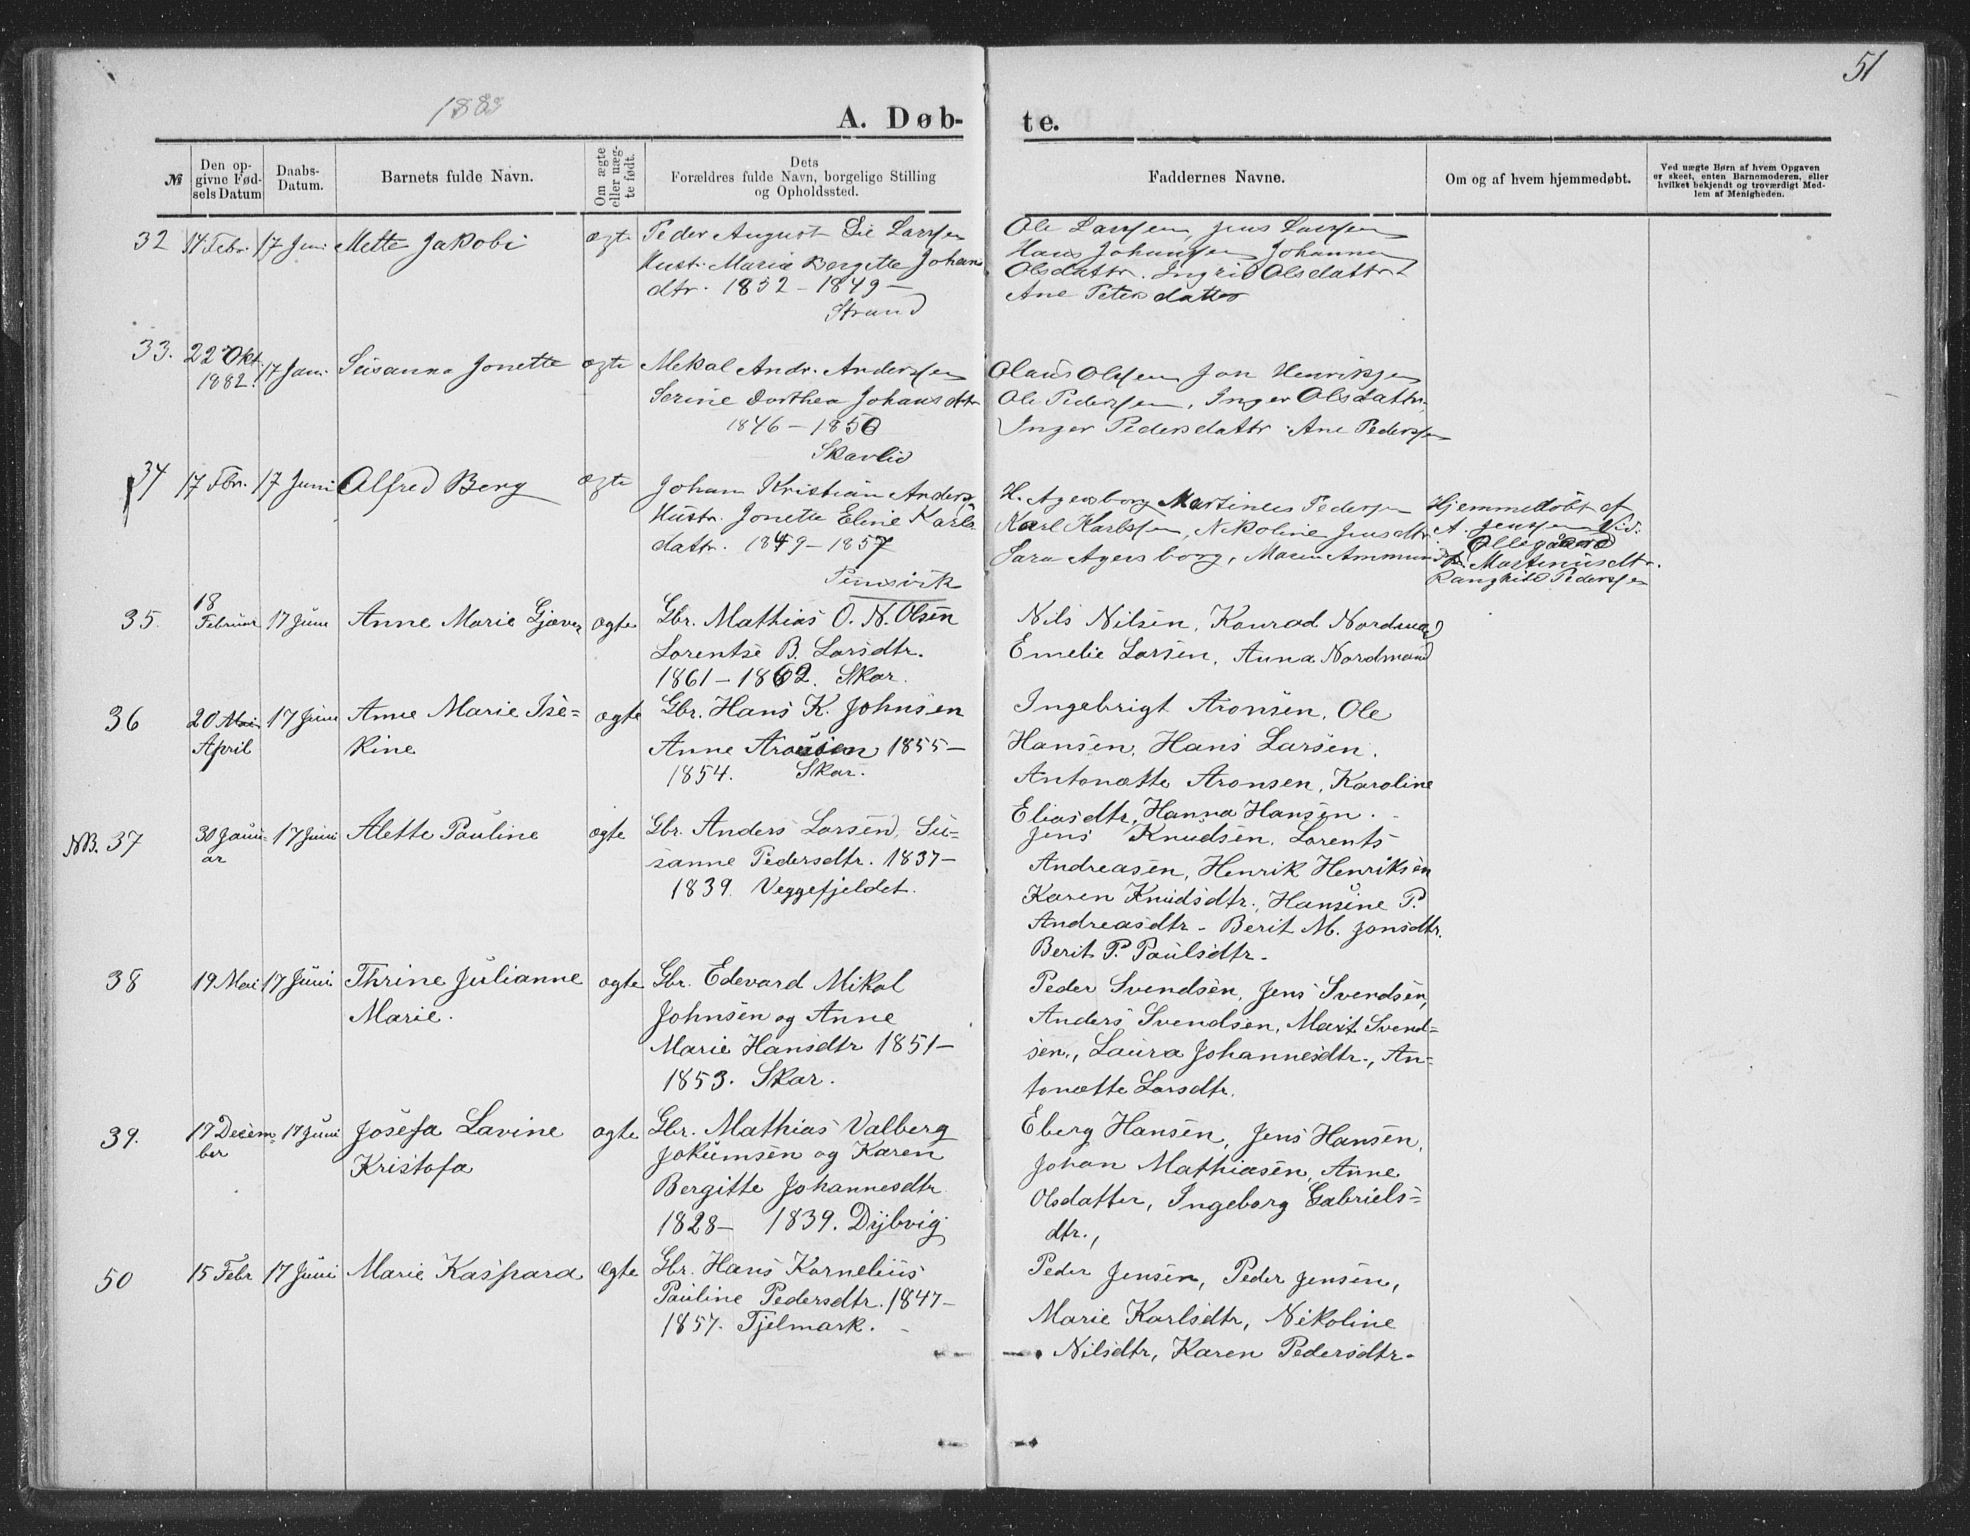 51
1883
A. Døb-
te.
№
Den op-
givne Fød-
sels Datum
Daabs-
Datum.
Barnets fulde Navn.
Om ægte
eller uæg-
te født.
Dets
Forældres fulde Navn, borgelige Stilling
og Opholdssted.
Faddernes Navne.
Om og af hvem hjemmedøbt.
Ved uægte Børn af hvem Opgaven
er skeet, enten Barnemoderen, eller
hvilket bekjendt og troværdigt Med-
lem af Menigheden.
32
14 Febr.
17 Juni
Mette Jakobi
ægte
Peder August Larsen
Hust. Maria Bergitte Johans
dtr. 1852 - 1849 -
Strand
Ole Larssen, Jens Larssen
Hans Johanssen Johanna
Olsdattr. Ingrid Olsdattr
Ane Petersdatter
33.
22 Okt.
1882.
17 Juni
Susanna Jonette
ægte
Mekal Andr. Anderssen
Serine Dorthea Johansdtr
1846 - 1850
Skavlid
Olaus Olssen Jon Henrikssen
Ole Pederssen, Inger Olsdattr.
Inger Pedersdattr. Ane Pederssen
34
17 Febr.
17 Juni
Alfred Berg
ægte
Johan Kristian Anders.
Hustr. Jonette Eline Karls
dattr. 1849 - 1857
H. Agersborg Martines Pedersen
Karl Karlssen, Nikoline Jensdtr
Sara Agersborg, Maren
Hjemmedøbt af
A. Jenssen
Martinusdtr.
Ranghild Pederssen
35.
18
Februar
17 Juni
Anne Marie Gjæver
ægte
Gbr. Mathias O. N. Olsen
Lorentse B. Larsdtr.
1861 - 1862. Skar.
Nils Nilsen, Konrad Nordmand
Emelie Larsen, Anna Nordmand
36
20 Mai
April
17 Juni
Anne Marie Ise=
kine
ægte
Gbr. Hans K. Johnsen
Anne Aronsen 1855 -
1854. Skar.
Ingebrigt Aronsen, Ole
Hansen, Hans Larsen.
Antonætte Aronsen, Karoline
Eliasdtr, Hanna Hansen.
NB. 37
30 Janu-
ar
17 Juni
Alette Pauline
ægte
Gbr. Anders Larsen, Su=
sanne Pedersdtr. 1837 -
1839. Veggefjeldet.
Jens Knudsen, Lorents
Andreasen, Henrik Henriksen
Karen Knudsdtr., Hansine P.
Andreasdtr - Berit M. Jonsdtr.
Berit P. Paulsdtr -
38
19 Mai
17 Juni
Thrine Julianne
Marie.
ægte
Gbr. Edevard Mikal
Johnsen og Anne
Marie Hansdtr 1851 -
1853. Skar.
Peder Svendsen, Jens Svendsen,
Anders Svendsen, Marit Svend=
sen., Laura Johannesdtr., An=
tonætte Larsdtr.
39.
17 Decem-
ber
17 Juni
Josefa Lavine
Kristofa
ægte
Gbr. Mathias Valberg
Jokumsen og Karen
Bergitte Johannesdtr
1828 - 1839. Dybvig
Eberg Hansen, Jens Hansen,
Johan Mathiasen, Anne
Olsdatter, Ingeborg Gabriels=
dtr.,
50
15 Febr
17 Juni
Marie Kaspara
Ægte
Gbr. Hans Kornelius
Pauline Pedersdtr. 1847 -
1857. Tjelmark.
Peder Jensen, Peder Jensen,
Marie Karlsdtr, Nikoline
Nilsdtr, Karen Pedersdtr -